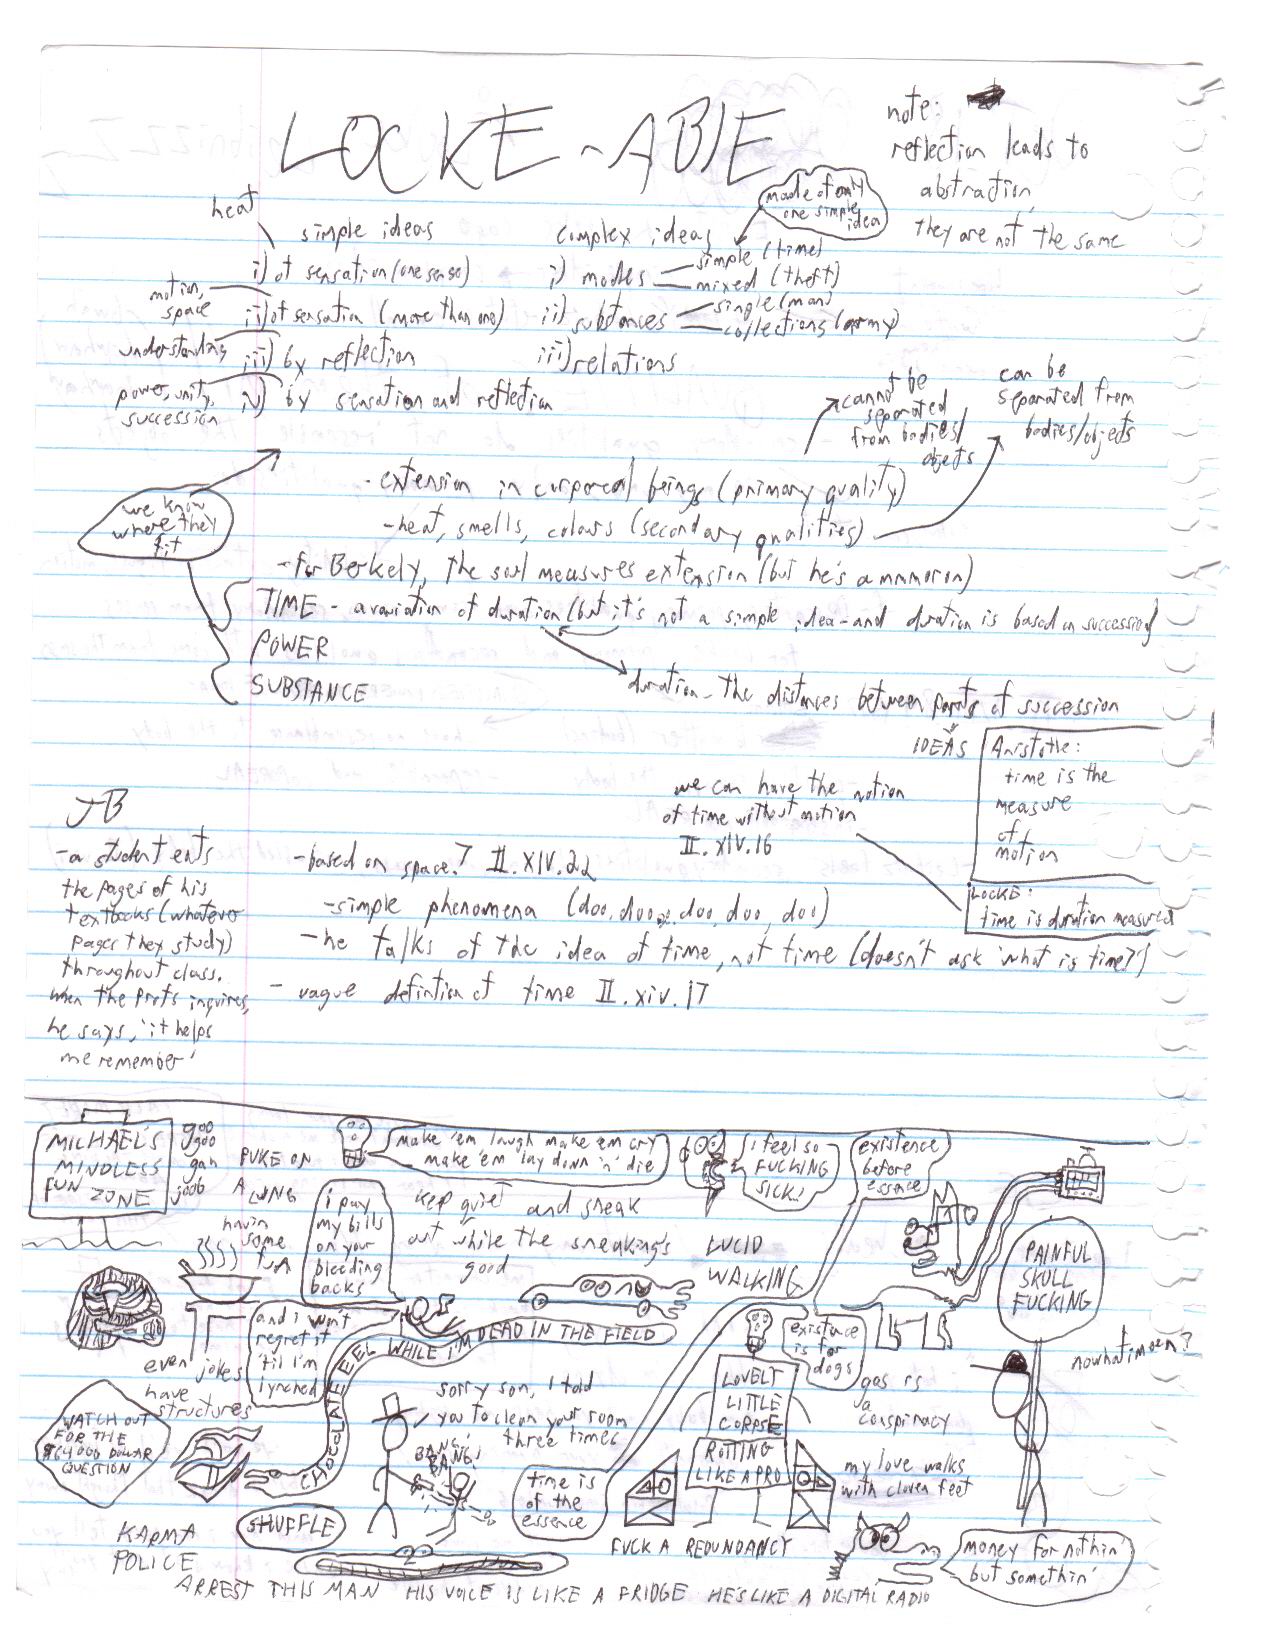 LOCKE-ABLE
note:
reflection leads to
abstraction,
they are not the same
made of only
one simple
idea
heat
simple ideas
i) of sensation (one sense)
motion,
space
ii) of sensation (more than one)
understanding
iii) by reflection
power, unity,
succession
iv) by sensation and reflection
complex ideas
i) modes
simple (time)
mixed (theft)
ii) substances
single (man)
collections (army)
iii) relations
cannot be
separated
from bodies/
objects
can be
separated from
bodies/objects
we know
where they
fit
- extension in corporeal beings (primary quality)
- heat, smells, colours (secondary qualities)
- for Berkely, the soul measures extension (but he's a mmmoron)
TIME - a variation of duration (but it's not a simple idea - and duration is based on succession)
POWER
SUBSTANCE
duration - the distances between parts of succession
IDEAS
Aristotle:
time is the
measure
of
motion
LOCKE:
time is duration measured
we can have the notion
of time without motion
II. xiv. 16
JB
- a student eats
the pages of his
textbooks (whatever
pages they study)
throughout class.
when the profs inquires,
he says, 'it helps
me remember'
- based on space? II. XIV. 22
- simple phenomena (doo, doo, doo, doo, doo)
- he talks of the idea of time, not time (doesn't ask 'what is time?')
- vague defintion of time II. xiv. 17
MICHAEL'S
MINDLESS
FUN ZONE
goo
goo
gah
joob
PUKE ON
A LUNG
make 'em laugh make 'em cry
make 'em lay down 'n' die
i feel so
FUCKING
SICK!
existence
before
essence
havin
some
fun
i pay
my bills
on your
bleeding
backs
keep quiet and sneak
out while the sneaking's
good
LUCID
WALKING
PAINFUL
SKULL
FUCKING
and i won't
regret it
'til i'm
lynched
CHOCOLATE EEL WHILE I'M DEAD IN THE FIELD
existence
is for
dogs
nowhatimeen?
even jokes
have
structures
WATCH OUT
FOR THE
$64000 DOLLAR
QUESTION
sorry son, I told
you to clean your room
three times
BANG!
BANG!
LOVELY
LITTLE
CORPSE
ROTTING
LIKE A PRO
gas is
a
conspiracy
my love walks
with cloven feet
time is
of the
essence
SHUFFLE
FUCK A REDUNDANCY
money for nothin'
but somethin'
KARMA
POLICE
ARREST THIS MAN HIS VOICE IS LIKE A FRIDGE HE'S LIKE A DIGITAL RADIO